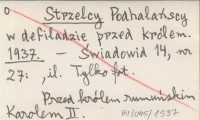 o
Strzelcy Podhalańscy
w defiladzie przed królem.
1937. – Światowid 14, nr
27: , il. Tylko fot.
Przed królem rumuńskim
Karolem II.
BI/045/1937